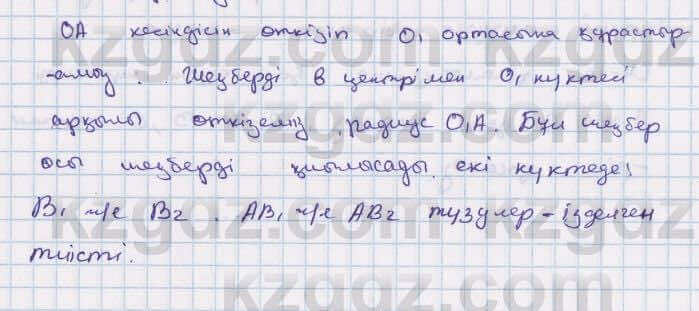 OA кесіндісін өткізіп O₁ ортасына құрастыр-
-амыз. Шеңберді в центрімен O₁ нүктесі
арқылы өткіземіз, радиус O₁A. Бұл шеңбер
осы шеңберді қиылысады екі нүктеде:
B₁ ж/е B₂. AB₁ ж/е AB₂ түзулер - ізделген
тиісті.
kzgdz.com